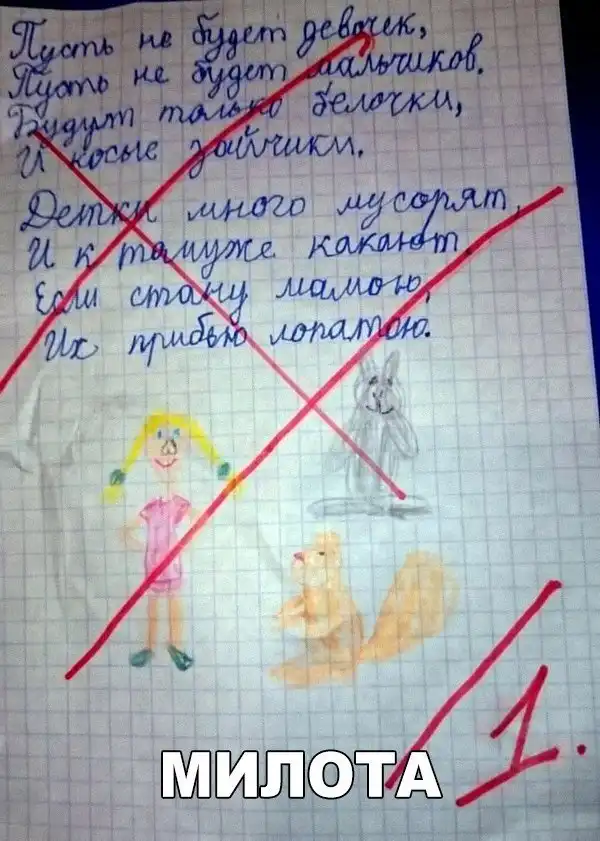 Пусть не будет девочек,
Пусть не будет мальчиков.
Будут только белочки,
И косые зайчики.
Детки много мусорят,
И к томуже какают
Если стану мамою,
Их прибью лопатою.
1.
МИЛОТА